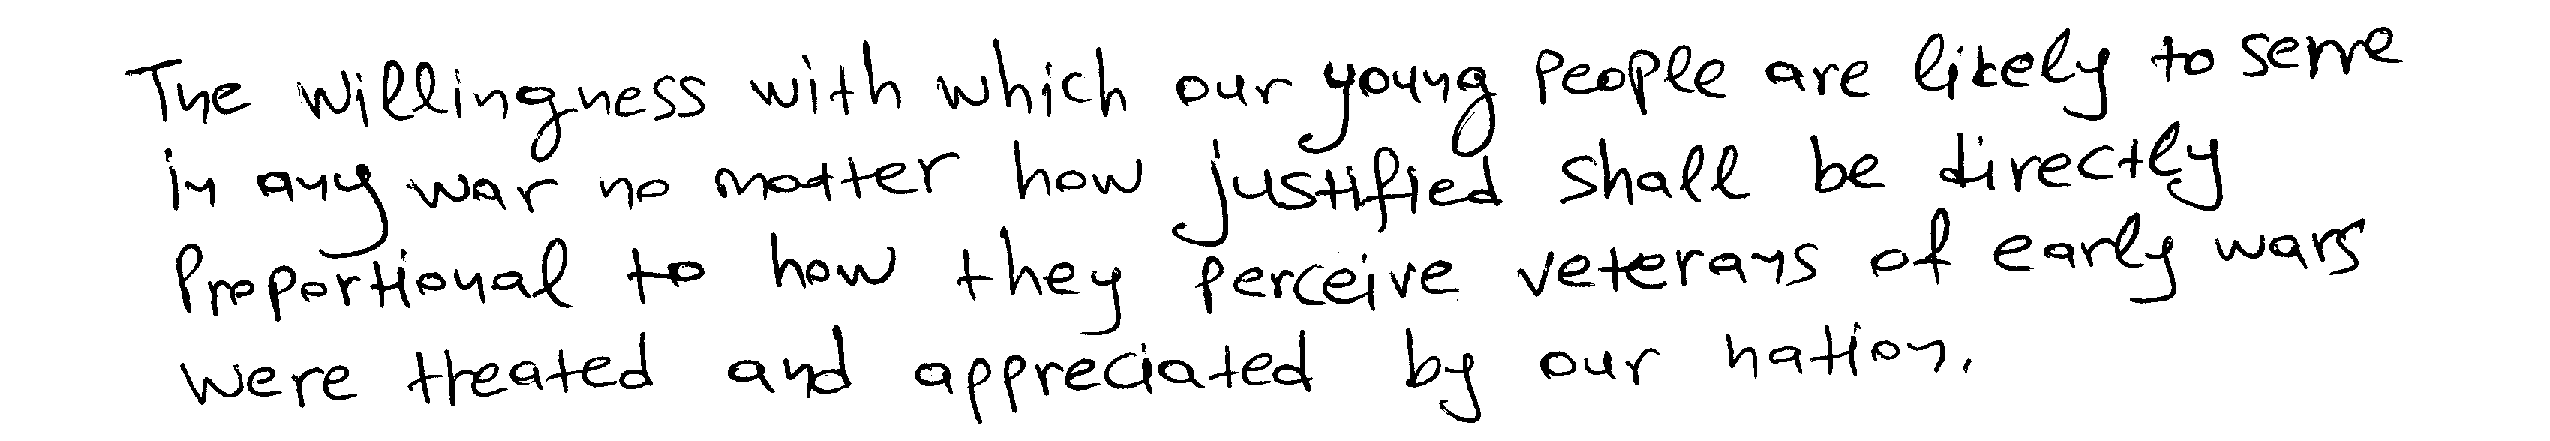 The willingness with which our young people are likely to serve
in any war no matter how justified shall be directly
proportional to how they perceive veterans of early wars
were treated and appreciated by our nation.